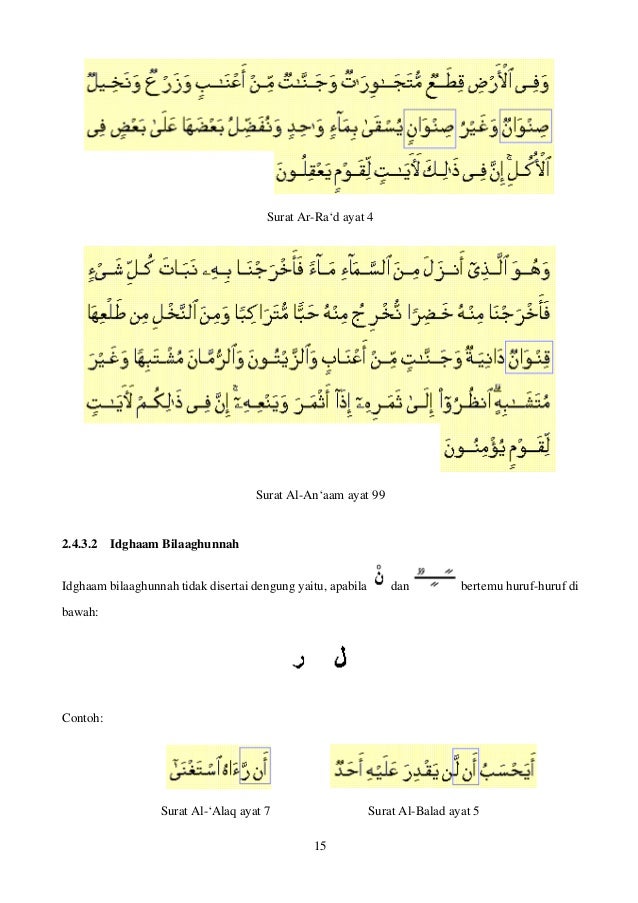 وَفِى ٱلْأَرْضِ قِطَعٌ مُّتَجَـٰوِرَٰتٌ وَجَنَّـٰتٌ مِّنْ أَعْنَـٰبٍ وَزَرْعٌ وَنَخِيلٌ
صِنْوَانٌ وَغَيْرُ صِنْوَانٍ يُسْقَىٰ بِمَآءٍ وَٰحِدٍ وَنُفَضِّلُ بَعْضَهَا عَلَىٰ بَعْضٍ فِى
ٱلْأُكُلِ ۚ إِنَّ فِى ذَٰلِكَ لَأَيَـٰتٍ لِّقَوْمٍ يَعْقِلُونَ
Surat Ar-Ra‘d ayat 4
وَهُوَ ٱلَّذِىٓ أَنزَلَ مِنَ ٱلسَّمَآءِ مَآءً فَأَخْرَجْنَا بِهِۦ نَبَاتَ كُلِّ شَىْءٍ
فَأَخْرَجْنَا مِنْهُ خَضِرًا نُّخْرِجُ مِنْهُ حَبًّا مُّتَرَاكِبًا وَمِنَ ٱلنَّخْلِ مِن طَلْعِهَا
قِنْوَانٌ دَانِيَةٌ وَجَنَّـٰتٍ مِّنْ أَعْنَابٍ وَٱلزَّيْتُونَ وَٱلرُّمَّانَ مُشْتَبِهًا وَغَيْرَ
مُتَشَـٰبِهٍ ۗ ٱنظُرُوٓا۟ إِلَىٰ ثَمَرِهِۦٓ إِذَآ أَثْمَرَ وَيَنْعِهِۦٓ ۚ إِنَّ فِى ذَٰلِكُمْ لَأَيَـٰتٍ
لِّقَوْمٍ يُؤْمِنُونَ
Surat Al-An‘aam ayat 99
2.4.3.2 Idghaam Bilaaghunnah
Idghaam bilaaghunnah tidak disertai dengung yaitu, apabila نْ dan ــًــٍــٌ bertemu huruf-huruf di
bawah:
ل ر
Contoh:
أَن رَّءَاهُ ٱسْتَغْنَىٰٓ أَيَحْسَبُ أَن لَّن يَقْدِرَ عَلَيْهِ أَحَدٌ
Surat Al-‘Alaq ayat 7 Surat Al-Balad ayat 5
15